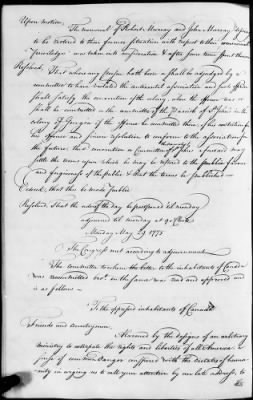 Upon motion,
The memorial of Robert Murray and John Murray desiring
to be restored to their former situation with respect to their commercial
privileges was taken into consideration & after some time spent thereon
Resolved, That where any person hath been or shall be adjudged by a
committee to have violated the continental association and such offender
shall satisfy the convention of the colony where the offence was or
shall be committed or the committee of the Parish of St John's in the
colony of Georgia if the offence be committed there of his contrition for
his offence and sincere resolution to conform to the association for
the future; that convention or Committee of St Johns aforesaid may
settle the terms upon which he may be restored to the public favour
and forgiveness of the public & that the terms be published
Ordered, that this be made public
Resolved That the order of the day be postponed 'til monday
adjourned til monday at 9 oClock
Monday May 29 1775
The Congress met according to adjournment
The committee to whom the letter to the inhabitants of Canada
was recommitted bro't in the same was read and approved and
is as follows
To the oppressed inhabitants of Canada
Friends and countrymen,
Alarmed by the designs of an arbitrary
ministry to extirpate the rights and liberties of all America a
sense of common danger conspired with the dictates of huma-
nity in urging us to call your attention by our late address, to